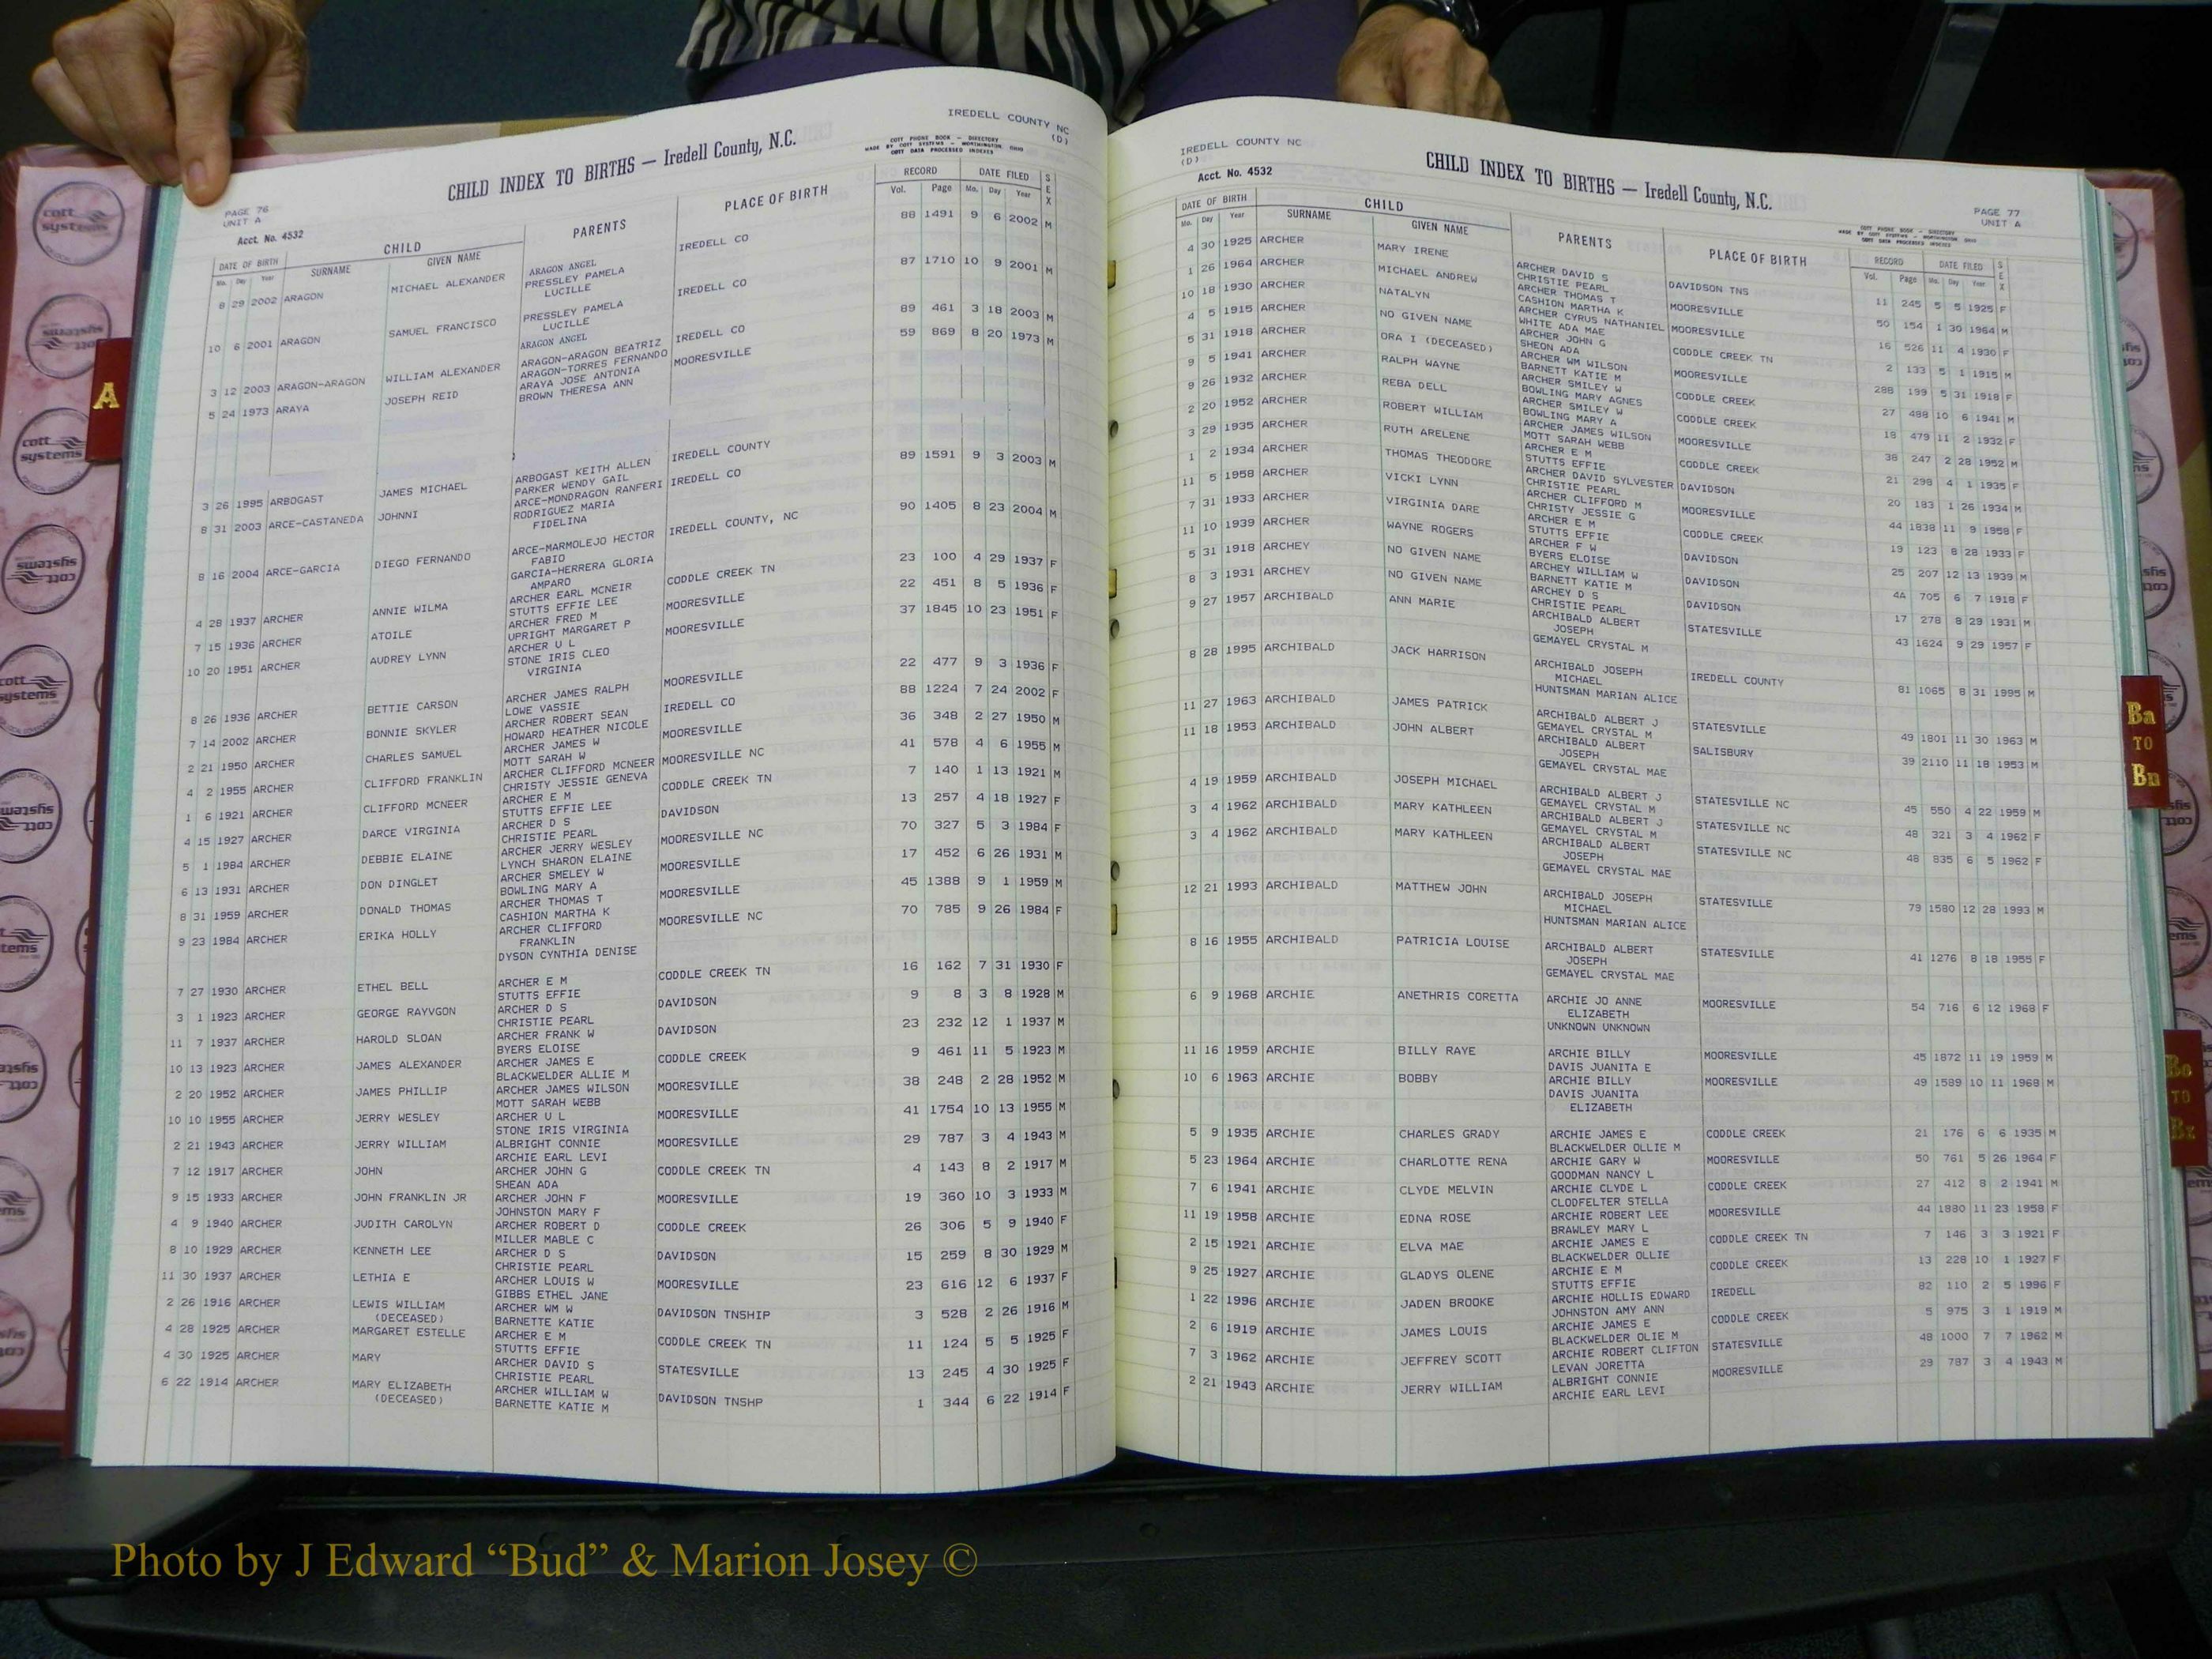 IREDELL COUNTY NC
(D)
CHILD INDEX TO BIRTHS — Iredell County, N.C.
COTT PHONE BOOK — DIRECTORY
MADE BY COTT SYSTEMS — WORTHINGTON, OHIO
COTT DATA PROCESSED INDEXES
PAGE 76
UNIT A
Acct. No. 4532
DATE OF BIRTH CHILD PARENTS PLACE OF BIRTH RECORD DATE FILED SEX
Mo. Day Year SURNAME GIVEN NAME Vol. Page Mo. Day Year
8 29 2002 ARAGON MICHAEL ALEXANDER ARAGON ANGEL IREDELL CO 88 1491 9 6 2002 M
PRESSLEY PAMELA
LUCILLE
10 6 2001 ARAGON SAMUEL FRANCISCO PRESSLEY PAMELA IREDELL CO 87 1710 10 9 2001 M
LUCILLE
ARAGON ANGEL
3 12 2003 ARAGON-ARAGON WILLIAM ALEXANDER ARAGON-ARAGON BEATRIZ IREDELL CO 89 461 3 18 2003 M
ARAGON-TORRES FERNANDO
5 24 1973 ARAYA JOSEPH REID ARAYA JOSE ANTONIA MOORESVILLE 59 869 8 20 1973 M
BROWN THERESA ANN
3 26 1995 ARBOGAST JAMES MICHAEL ARBOGAST KEITH ALLEN IREDELL COUNTY
PARKER WENDY GAIL
8 31 2003 ARCE-CASTANEDA JOHNNI ARCE-MONDRAGON RANFERI IREDELL CO 89 1591 9 3 2003 M
RODRIGUEZ MARIA
FIDELINA
8 16 2004 ARCE-GARCIA DIEGO FERNANDO ARCE-MARMOLEJO HECTOR IREDELL COUNTY, NC 90 1405 8 23 2004 M
FABIO
GARCIA-HERRERA GLORIA
AMPARO
4 28 1937 ARCHER ANNIE WILMA ARCHER EARL MCNEIR CODDLE CREEK TN 23 100 4 29 1937 F
STUTTS EFFIE LEE
7 15 1936 ARCHER ATOILE ARCHER FRED M MOORESVILLE 22 451 8 5 1936 F
UPRIGHT MARGARET P
10 20 1951 ARCHER AUDREY LYNN ARCHER U L MOORESVILLE 37 1845 10 23 1951 F
STONE IRIS CLEO
VIRGINIA
8 26 1936 ARCHER BETTIE CARSON ARCHER JAMES RALPH MOORESVILLE 22 477 9 3 1936 F
LOWE VASSIE
7 14 2002 ARCHER BONNIE SKYLER ARCHER ROBERT SEAN IREDELL CO 88 1224 7 24 2002 F
HOWARD HEATHER NICOLE
2 21 1950 ARCHER CHARLES SAMUEL ARCHER JAMES W MOORESVILLE 36 348 2 27 1950 M
MOTT SARAH W
4 2 1955 ARCHER CLIFFORD FRANKLIN ARCHER CLIFFORD MCNEER MOORESVILLE NC 41 578 4 6 1955 M
CHRISTY JESSIE GENEVA
1 6 1921 ARCHER CLIFFORD MCNEER ARCHER E M CODDLE CREEK TN 7 140 1 13 1921 M
STUTTS EFFIE LEE
4 15 1927 ARCHER DARCE VIRGINIA ARCHER D S DAVIDSON 13 257 4 18 1927 F
CHRISTIE PEARL
5 1 1984 ARCHER DEBBIE ELAINE ARCHER JERRY WESLEY MOORESVILLE NC 70 327 5 3 1984 F
LYNCH SHARON ELAINE
6 13 1931 ARCHER DON DINGLET ARCHER SMELEY W MOORESVILLE 17 452 6 26 1931 M
BOWLING MARY A
8 31 1959 ARCHER DONALD THOMAS ARCHER THOMAS T MOORESVILLE 45 1388 9 1 1959 M
CASHION MARTHA K
9 23 1984 ARCHER ERIKA HOLLY ARCHER CLIFFORD MOORESVILLE NC 70 785 9 26 1984 F
FRANKLIN
DYSON CYNTHIA DENISE
7 27 1930 ARCHER ETHEL BELL ARCHER E M CODDLE CREEK TN 16 162 7 31 1930 F
STUTTS EFFIE
3 1 1923 ARCHER GEORGE RAYVGON ARCHER D S DAVIDSON 9 8 3 8 1928 M
CHRISTIE PEARL
11 7 1937 ARCHER HAROLD SLOAN ARCHER FRANK W DAVIDSON 23 232 12 1 1937 M
BYERS ELOISE
10 13 1923 ARCHER JAMES ALEXANDER ARCHER JAMES E CODDLE CREEK 9 461 11 5 1923 M
BLACKWELDER ALLIE M
2 20 1952 ARCHER JAMES PHILLIP ARCHER JAMES WILSON MOORESVILLE 38 248 2 28 1952 M
MOTT SARAH WEBB
10 10 1955 ARCHER JERRY WESLEY ARCHER U L MOORESVILLE 41 1754 10 13 1955 M
STONE IRIS VIRGINIA
2 21 1943 ARCHER JERRY WILLIAM ALBRIGHT CONNIE MOORESVILLE 29 787 3 4 1943 M
ARCHIE EARL LEVI
7 12 1917 ARCHER JOHN ARCHER JOHN G CODDLE CREEK TN 4 143 8 2 1917 M
SHEAN ADA
9 15 1933 ARCHER JOHN FRANKLIN JR ARCHER JOHN F MOORESVILLE 19 360 10 3 1933 M
JOHNSTON MARY F
4 9 1940 ARCHER JUDITH CAROLYN ARCHER ROBERT D CODDLE CREEK 26 306 5 9 1940 F
MILLER MABLE C
8 10 1929 ARCHER KENNETH LEE ARCHER D S DAVIDSON 15 259 8 30 1929 M
CHRISTIE PEARL
11 30 1937 ARCHER LETHIA E ARCHER LOUIS W MOORESVILLE 23 616 12 6 1937 F
GIBBS ETHEL JANE
2 26 1916 ARCHER LEWIS WILLIAM ARCHER WM W DAVIDSON TNSHIP 3 528 2 26 1916 M
(DECEASED) BARNETTE KATIE
4 28 1925 ARCHER MARGARET ESTELLE ARCHER E M CODDLE CREEK TN 11 124 5 5 1925 F
STUTTS EFFIE
4 30 1925 ARCHER MARY ARCHER DAVID S STATESVILLE 13 245 4 30 1925 F
CHRISTIE PEARL
6 22 1914 ARCHER MARY ELIZABETH ARCHER WILLIAM W DAVIDSON TNSHP 1 344 6 22 1914 F
(DECEASED) BARNETTE KATIE M
IREDELL COUNTY NC
(D)
Acct. No. 4532
CHILD INDEX TO BIRTHS — Iredell County, N.C.
PAGE 77
UNIT A
COTT PHONE BOOK — DIRECTORY
MADE BY COTT SYSTEMS — WORTHINGTON, OHIO
COTT DATA PROCESSED INDEXES
DATE OF BIRTH CHILD PARENTS PLACE OF BIRTH RECORD DATE FILED SEX
Mo. Day Year SURNAME GIVEN NAME Vol. Page Mo. Day Year
4 30 1925 ARCHER MARY IRENE ARCHER DAVID S DAVIDSON TNS 11 245 5 5 1925 F
CHRISTIE PEARL
1 26 1964 ARCHER MICHAEL ANDREW ARCHER THOMAS T MOORESVILLE 50 154 1 30 1964 M
CASHION MARTHA K
10 18 1930 ARCHER NATALYN ARCHER CYRUS NATHANIEL MOORESVILLE 16 526 11 4 1930 F
WHITE ADA MAE
4 5 1915 ARCHER NO GIVEN NAME ARCHER JOHN G CODDLE CREEK TN 2 133 5 1 1915 M
SHEON ADA
5 31 1918 ARCHER ORA I (DECEASED) ARCHER WM WILSON MOORESVILLE 28B 199 5 31 1918 F
BARNETT KATIE M
9 5 1941 ARCHER RALPH WAYNE ARCHER SMILEY W CODDLE CREEK 27 488 10 6 1941 M
BOWLING MARY AGNES
9 26 1932 ARCHER REBA DELL ARCHER SMILEY W CODDLE CREEK 18 479 11 2 1932 F
BOWLING MARY A
2 20 1952 ARCHER ROBERT WILLIAM ARCHER JAMES WILSON MOORESVILLE 38 247 2 28 1952 M
MOTT SARAH WEBB
3 29 1935 ARCHER RUTH ARELENE ARCHER E M CODDLE CREEK 21 298 4 1 1935 F
STUTTS EFFIE
1 2 1934 ARCHER THOMAS THEODORE ARCHER DAVID SYLVESTER DAVIDSON 20 183 1 26 1934 M
CHRISTIE PEARL
11 5 1958 ARCHER VICKI LYNN ARCHER CLIFFORD M MOORESVILLE 44 1838 11 9 1958 F
CHRISTY JESSIE G
7 31 1933 ARCHER VIRGINIA DARE ARCHER E M CODDLE CREEK 19 123 8 28 1933 F
STUTTS EFFIE
11 10 1939 ARCHER WAYNE ROGERS ARCHER F W DAVIDSON 25 207 12 13 1939 M
BYERS ELOISE
5 31 1918 ARCHEY NO GIVEN NAME ARCHEY WILLIAM W DAVIDSON 4A 705 6 7 1918 F
BARNETT KATIE M
8 3 1931 ARCHEY NO GIVEN NAME ARCHEY D S DAVIDSON 17 278 8 29 1931 M
CHRISTIE PEARL
9 27 1957 ARCHIBALD ANN MARIE ARCHIBALD ALBERT STATESVILLE 43 1624 9 29 1957 F
JOSEPH
GEMAYEL CRYSTAL M
8 28 1995 ARCHIBALD JACK HARRISON ARCHIBALD JOSEPH IREDELL COUNTY 81 1065 8 31 1995 M
MICHAEL
HUNTSMAN MARIAN ALICE
11 27 1963 ARCHIBALD JAMES PATRICK ARCHIBALD ALBERT J STATESVILLE 49 1801 11 30 1963 M
GEMAYEL CRYSTAL M
11 18 1953 ARCHIBALD JOHN ALBERT ARCHIBALD ALBERT SALISBURY 39 2110 11 18 1953 M
JOSEPH
GEMAYEL CRYSTAL MAE
4 19 1959 ARCHIBALD JOSEPH MICHAEL ARCHIBALD ALBERT J STATESVILLE NC 45 550 4 22 1959 M
GEMAYEL CRYSTAL M
3 4 1962 ARCHIBALD MARY KATHLEEN ARCHIBALD ALBERT J STATESVILLE NC 48 321 3 4 1962 F
GEMAYEL CRYSTAL M
3 4 1962 ARCHIBALD MARY KATHLEEN ARCHIBALD ALBERT STATESVILLE NC 48 835 6 5 1962 F
JOSEPH
GEMAYEL CRYSTAL MAE
12 21 1993 ARCHIBALD MATTHEW JOHN ARCHIBALD JOSEPH STATESVILLE 79 1580 12 28 1993 M
MICHAEL
HUNTSMAN MARIAN ALICE
8 16 1955 ARCHIBALD PATRICIA LOUISE ARCHIBALD ALBERT STATESVILLE 41 1276 8 18 1955 F
JOSEPH
GEMAYEL CRYSTAL MAE
6 9 1968 ARCHIE ANETHRIS CORETTA ARCHIE JO ANNE MOORESVILLE 54 716 6 12 1968 F
ELIZABETH
UNKNOWN UNKNOWN
11 16 1959 ARCHIE BILLY RAYE ARCHIE BILLY MOORESVILLE 45 1872 11 19 1959 M
DAVIS JUANITA E
10 6 1963 ARCHIE BOBBY ARCHIE BILLY MOORESVILLE 49 1589 10 11 1968 M
DAVIS JUANITA
ELIZABETH
5 9 1935 ARCHIE CHARLES GRADY ARCHIE JAMES E CODDLE CREEK 21 176 6 6 1935 M
BLACKWELDER OLLIE M
5 23 1964 ARCHIE CHARLOTTE RENA ARCHIE GARY W MOORESVILLE 50 761 5 26 1964 F
GOODMAN NANCY L
7 6 1941 ARCHIE CLYDE MELVIN ARCHIE CLYDE L CODDLE CREEK 27 412 8 2 1941 M
CLODFELTER STELLA
11 19 1958 ARCHIE EDNA ROSE ARCHIE ROBERT LEE MOORESVILLE 44 1880 11 23 1958 F
BRAWLEY MARY L
2 15 1921 ARCHIE ELVA MAE ARCHIE JAMES E CODDLE CREEK TN 7 146 3 3 1921 F
BLACKWELDER OLLIE
9 25 1927 ARCHIE GLADYS OLENE ARCHIE E M CODDLE CREEK 13 228 10 1 1927 F
STUTTS EFFIE
1 22 1996 ARCHIE JADEN BROOKE ARCHIE HOLLIS EDWARD IREDELL 82 110 2 5 1996 F
JOHNSTON AMY ANN
2 6 1919 ARCHIE JAMES LOUIS ARCHIE JAMES E CODDLE CREEK 5 975 3 1 1919 M
BLACKWELDER OLIE M
7 3 1962 ARCHIE JEFFREY SCOTT ARCHIE ROBERT CLIFTON STATESVILLE 48 1000 7 7 1962 M
LEVAN JORETTA
2 21 1943 ARCHIE JERRY WILLIAM ALBRIGHT CONNIE MOORESVILLE 29 787 3 4 1943 M
ARCHIE EARL LEVI
A
Ba
TO
Bn
Bo
TO
Bz
cott
systems
Photo by J Edward “Bud” & Marion Josey ©